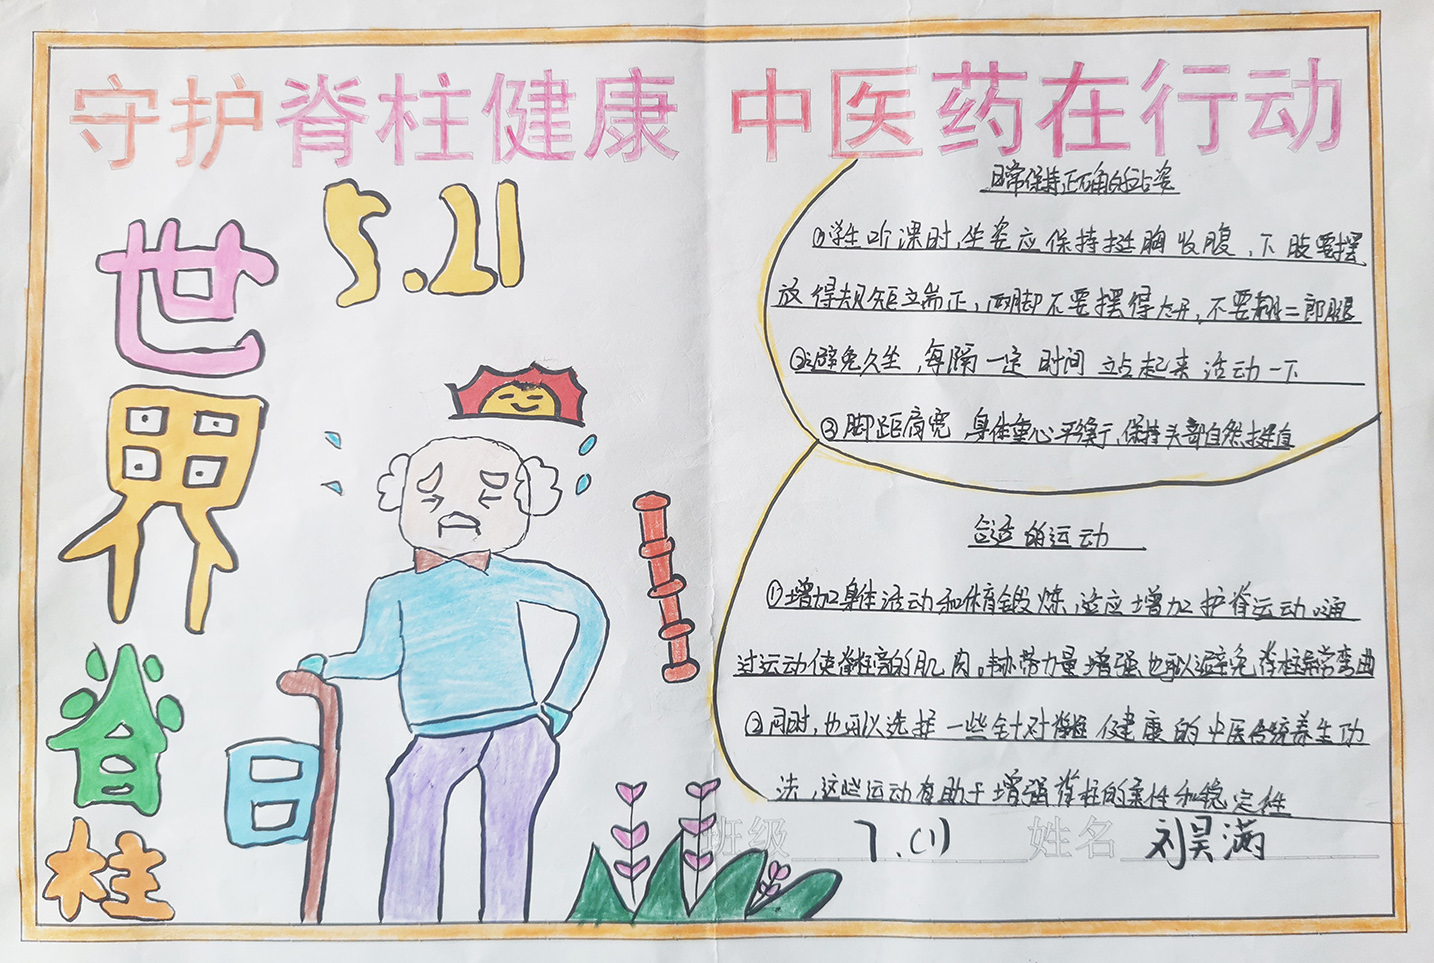 守护脊柱健康 中医药在行动
5.21
世界脊柱日
日常保持正确的站姿
①学生听课时,坐姿应保持挺胸收腹,下肢要摆
放得规矩立端正,两脚不要摆得太开,不要翘二郎腿
②避免久坐,每隔一定时间站起来活动一下
③脚距肩宽,身体重心平衡,保持头部自然挺直
合适的运动
①增加身体活动和体育锻炼,适应增加护脊运动。通
过运动使脊柱旁的肌肉。韧带力量增强,也可以避免脊柱异常弯曲
②同时,也可以选择一些针对脊柱健康的中医传统养生功
法,这些运动有助于增强脊柱的柔性和稳定性
班级 7.(1) 姓名 刘昊满